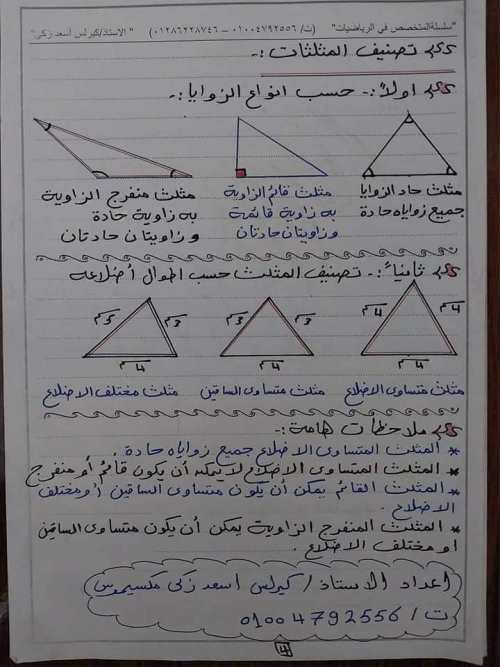 "سلسلة المتخصص في الرياضيات" (ت/ ٠١٠٠٤٧٩٢٥٥٦ – ٠١٢٨٦٢٢٨٧٤٦) "الاستاذ/كيرلس أسعد زكى"
تصنيف المثلثات :-
اولاً :- حسب انواع الزوايا :-
مثلث حاد الزوايا
جميع زواياه حادة
مثلث قائم الزاوية
به زاوية قائمة
وزاويتان حادتان
مثلث منفرج الزاوية
به زاوية حادة
وزاويتان حادتان
ثانياً :- تصنيف المثلث حسب اطوال أضلاعه
4سم 4سم
4سم
3سم 3سم
4سم
3سم 5سم
4سم
مثلث متساوى الاضلاع
مثلث متساوى الساقين
مثلث مختلف الاضلاع
ملاحظات هامة :-
* المثلث المتساوى الاضلاع جميع زواياه حادة .
* المثلث المتساوى الاضلاع لا يمكن أن يكون قائم أو منفرج
* المثلث القائم يمكن أن يكون متساوى الساقين أو مختلف
الاضلاع .
* المثلث المنفرج الزاوية يمكن أن يكون متساوى الساقين
او مختلف الاضلاع .
اعداد الاستاذ / كيرلس اسعد زكى مكسيموس
ت / 01004792556
4